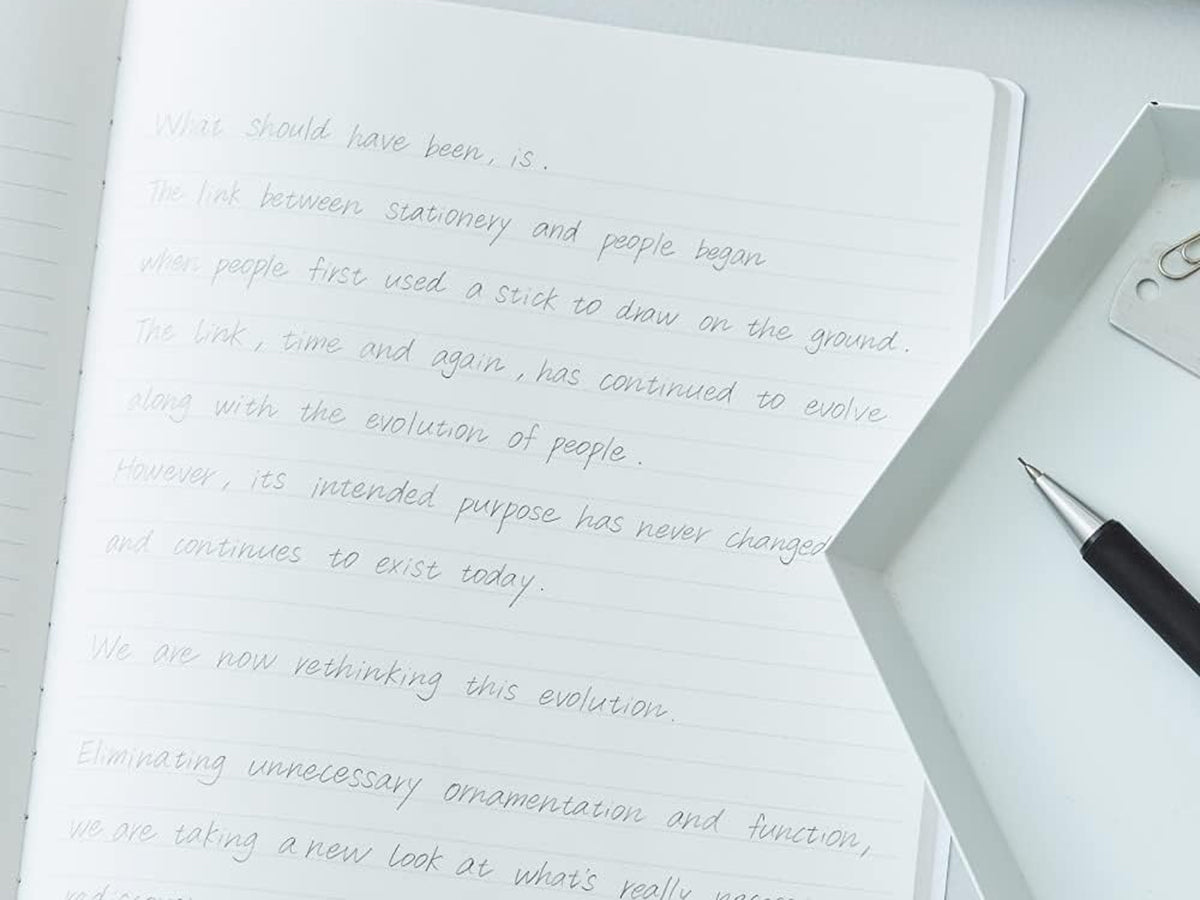 What should have been, is.
The link between stationery and people began
when people first used a stick to draw on the ground.
The link, time and again, has continued to evolve
along with the evolution of people.
However, its intended purpose has never changed
and continues to exist today.
We are now rethinking this evolution.
Eliminating unnecessary ornamentation and function,
we are taking a new look at what's really